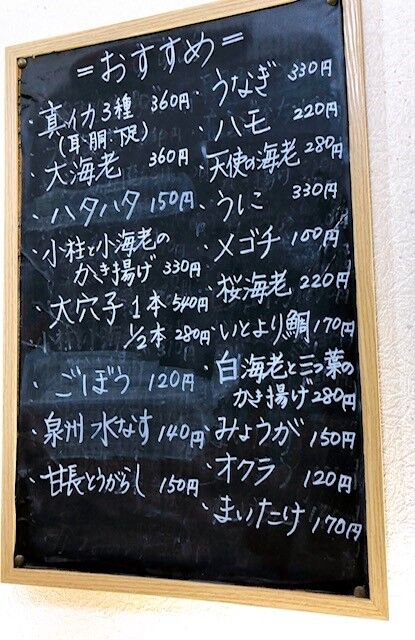 =おすすめ=
・真イカ3種 360円
(耳・胴・下足)
・大海老 360円
・ハタハタ 150円
・小柱と小海老の
かき揚げ 330円
・大穴子 1本 540円
1/2本 280円
・ごぼう 120円
・泉州 水なす 140円
・甘長とうがらし 150円
・うなぎ 330円
・ハモ 220円
・天使の海老 280円
・うに 330円
・メゴチ 100円
・桜海老 220円
・いとより鯛 170円
・白海老と三つ葉の
かき揚げ 280円
・みょうが 150円
・オクラ 120円
・まいたけ 170円